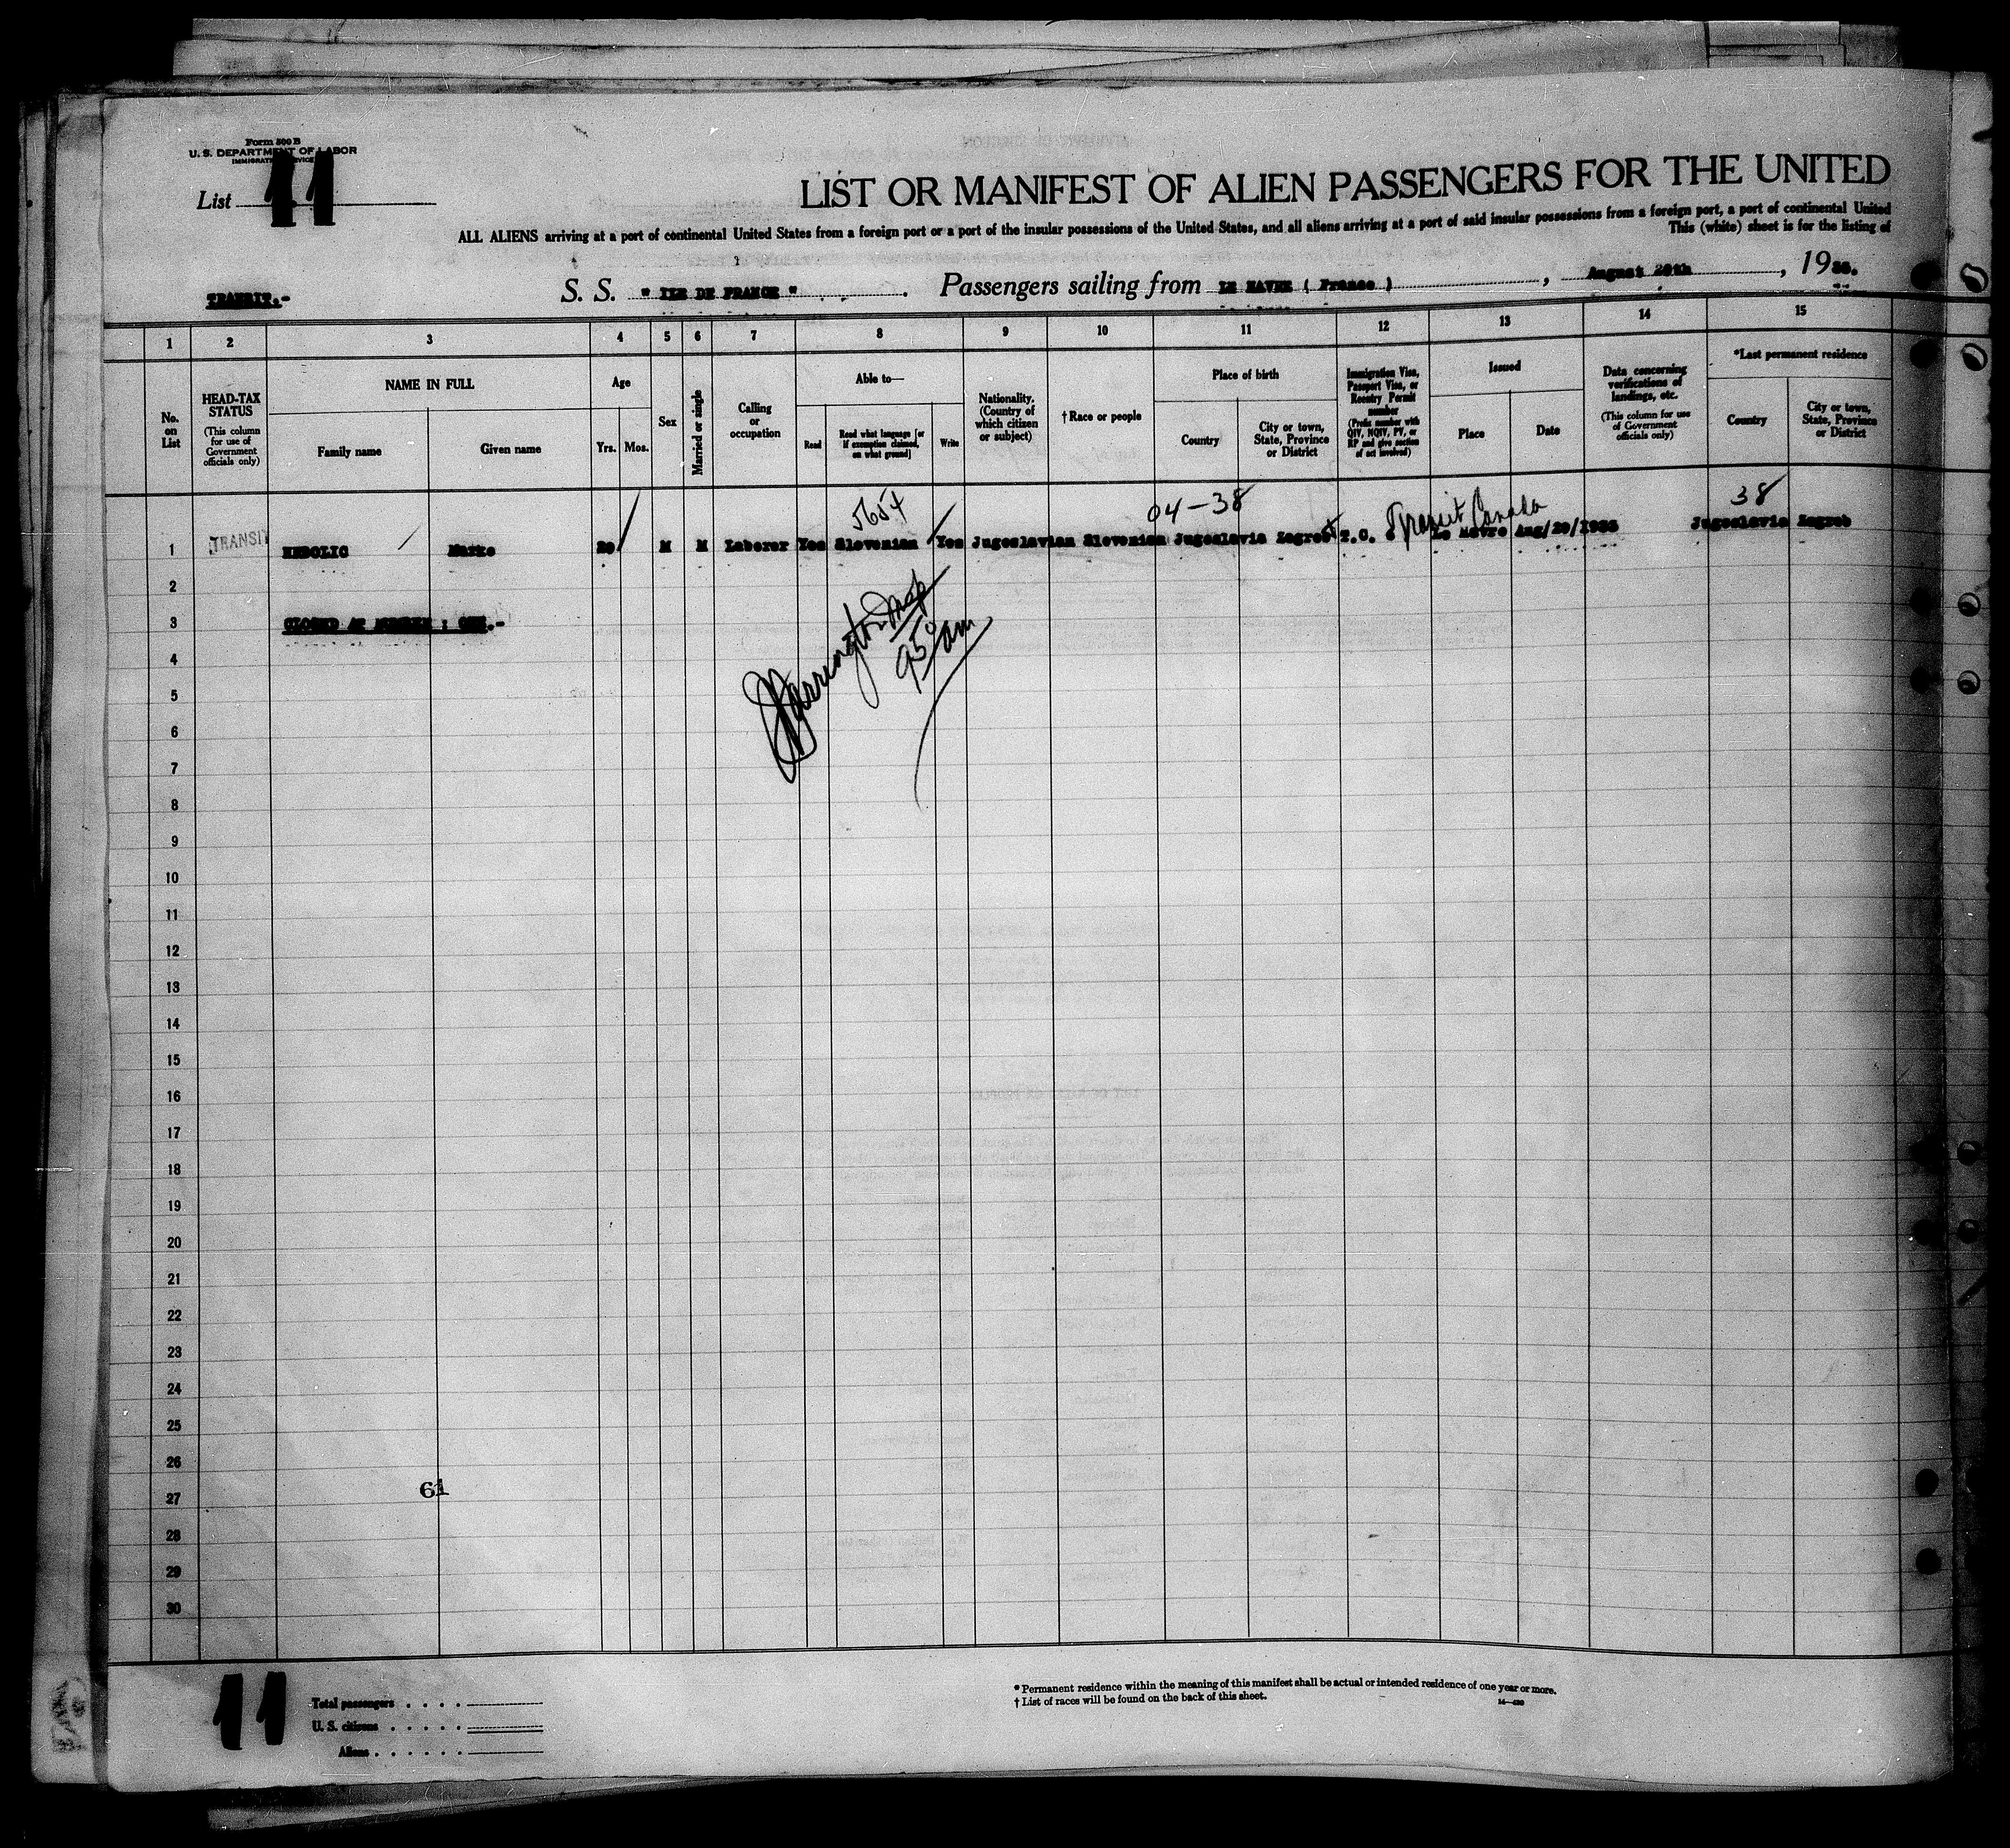 Form 500 B
U. S. DEPARTMENT OF LABOR
IMMIGRATION SERVICE
List 11
LIST OR MANIFEST OF ALIEN PASSENGERS FOR THE UNITED
ALL ALIENS arriving at a port of continental United States from a foreign port or a port of the insular possessions of the United States, and all aliens arriving at a port of said insular possessions from a foreign port, a port of continental United
This (white) sheet is for the listing of
TRANSIT.-
S. S. " ILE DE FRANCE " . Passengers sailing from LE HAVRE ( France ) , August 29th , 19
1 2 3 4 5 6 7 8 9 10 11 12 13 14 15
No. on List
HEAD-TAX STATUS (This column for use of Government officials only)
NAME IN FULL
Family name
Given name
Age
Yrs. Mos.
Sex
Married or single
Calling or occupation
Able to—
Read
Read what language [or if exemption claimed, on what ground]
Write
Nationality. (Country of which citizen or subject)
† Race or people
Place of birth
Country
City or town, State, Province or District
Immigration Visa, Passport Visa, or Reentry Permit number
(Prefix number with QIV, NQIV, PV, or RP and give section of act involved)
Issued
Place
Date
Data concerning verifications of landings, etc.
(This column for use of Government officials only)
*Last permanent residence
Country
City or town, State, Province or District
5654 04-38 Transit Canada 38
1 TRANSIT Marko M M Laborer Yes Slovenian Yes Jugoslavian Slovenian Jugoslavia Zagreb T.C. Le Havre Aug/29/ Jugoslavia Zagreb
2
3 CLOSED AT NUMBER : ONE.-
4
5
6
7
8
9
10
11
12
13
14
15
16
17
18
19
20
21
22
23
24
25
26
27
28
29
30
950 am
61
11
Total passengers . . . .
U. S. citizens . . . . .
Aliens . . . . . .
* Permanent residence within the meaning of this manifest shall be actual or intended residence of one year or more.
† List of races will be found on the back of this sheet.